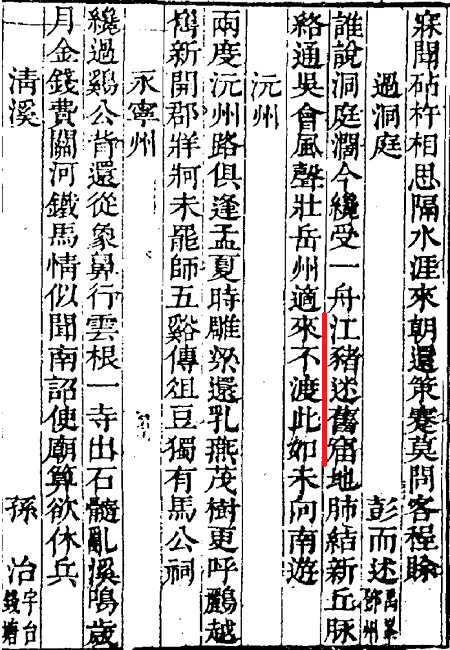 寐聞砧杵相思隔水涯來朝還策蹇莫問客程賒
過洞庭
彭而述禹峯鄧州
誰說洞庭濶今纔受一舟江豬迷舊窟地肺結新丘脉
絡通吳會風聲壯岳州適來不渡此如未向南遊
沅州
兩度沅州路俱逢孟夏時雕梁還乳燕茂樹更呼鸝越
嶲新開郡牂牁未罷師五谿傳俎豆獨有馬公祠
永寧州
纔過鷄公背還從象鼻行雲根一寺出石髓亂溪鳴歲
月金錢費關河鐵馬情似聞南詔使廟算欲休兵
清溪
孫治宇台錢塘